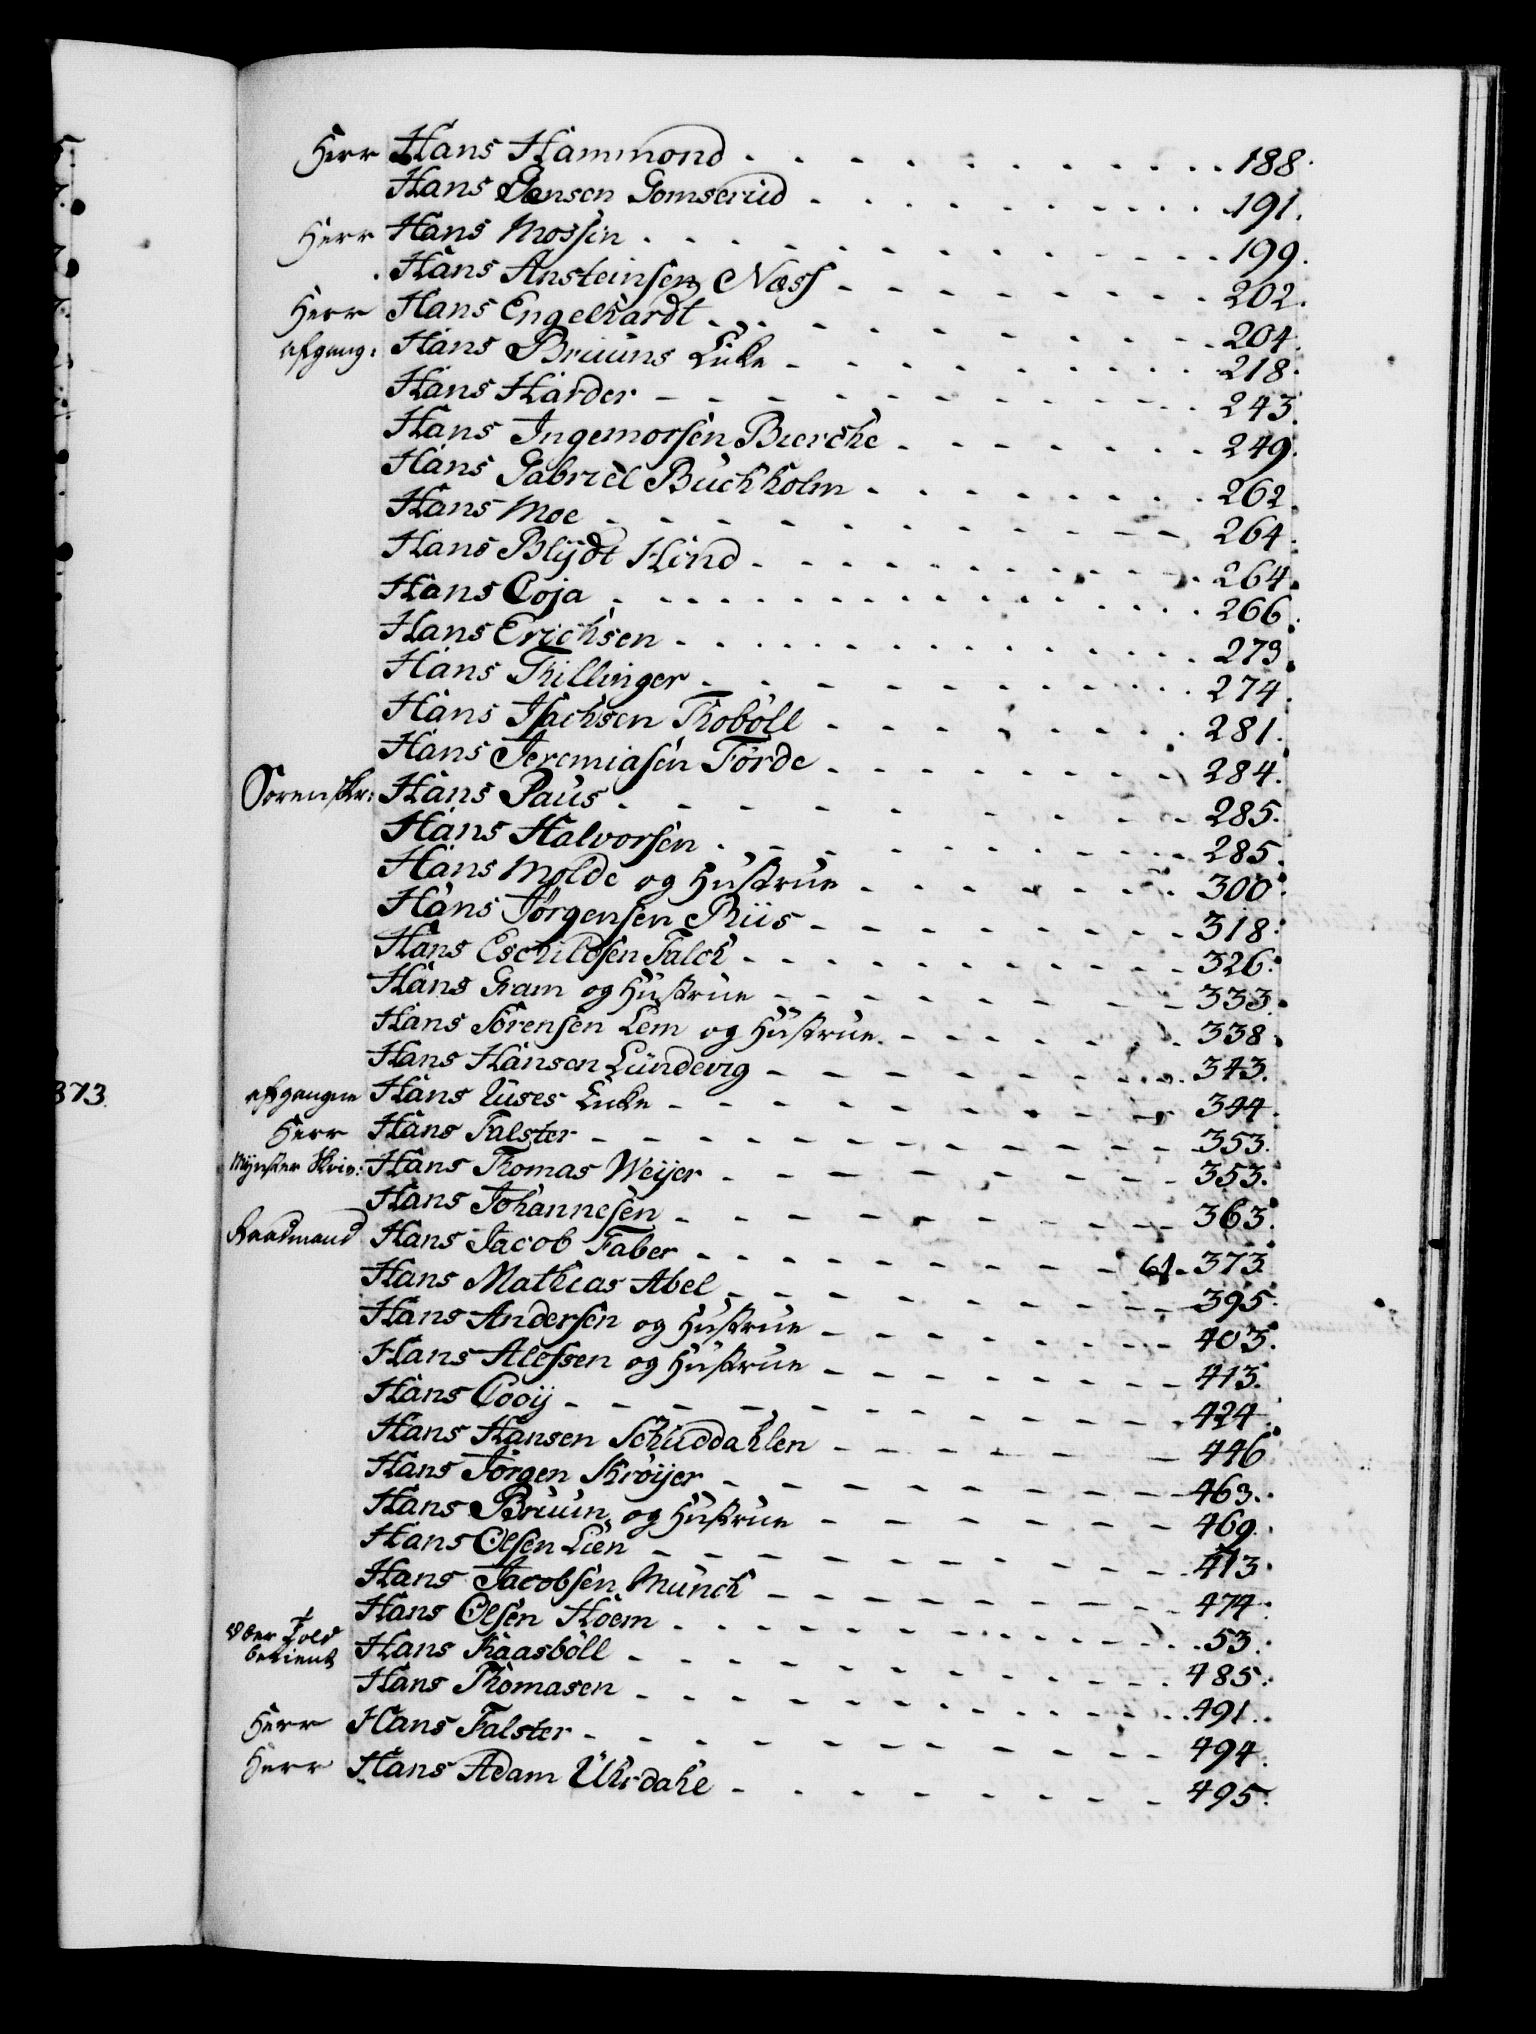 Herr Hans Hammond . . . . . . . . . . . . 188.
Hans Jensen Gomserud . . . . . . . . . . 191.
Herr Hans Mossin . . . . . . . . . . . . . . 199.
Hans Ansteinsen Næss - - - - - - - - - 202.
Herr Hans Engelhardt . . . . . . . . . . . . 204.
afgang: Hans Bruuns Enke - - - - - - - - - 218.
Hans Harder - - - - - - - - - - - - 243.
Hans Ingemorsen Bierche . - - - - - - 249.
Hans Gabriel Buchholm . . . . . . . . . 262.
Hans Moe - - - - - - - - - - - - - 264.
Hans Blÿdt Hind . . . . . . . . . . . . 264.
Hans Coja . . . . . . . . . . . . . . . . 266.
Hans Erichsen . . . . . . . . . . . . . . 273.
Hans Thillinger . . . . . . . . . . . . . 274.
Hans Isachsen Thobøll - - - - - - - - 281.
Hans Jeremiasen Førde - - - - - - - - 284.
Sorenskr: Hans Paus . - - - - - - - - - - - 285.
Hans Halvorsen . - - - - - - - - - - 285.
Hans Molde og Hustrue - - - - - - - 300.
Hans Jørgensen Riis - - - - - - - - - 318.
Hans Eschildsen Falch - - - - - - - - - 326.
Hans Gram og Hustrue - - - - - - - - - 333.
Hans Sørensen Lem og Hustrue - - - - - - 338.
Hans Hansen Lundevig - - - - - - - - - 343.
afgangne Hans Uuses Enke - - - - - - - - - - 344.
Herr Hans Falster - - - - - - - - - - - - 353.
Mÿnster Skriv: Hans Thomas Weÿer - - - - - - - - - 353.
Hans Johannesen - - - - - - - - - - - 363.
Raadmand Hans Jacob Faber - - - - - - - - - - 61. 373.
Hans Mathias Abel - - - - - - - - - - 395.
Hans Andersen og Hustrue - - - - - - - - 403.
Hans Alefsen og Hustrue - - - - - - - - 413.
Hans Cooÿ - - - - - - - - - - - - - 424.
Hans Hansen Schuddahlen - - - - - - - 446
Hans Jørgen Krøÿer - - - - - - - - - - 463.
Hans Bruun og Hustrue - - - - - - - 469.
Hans Olsen Lien - - - - - - - - - - - 413.
Hans Jacobsen Munch - - - - - - - - - 474.
Hans Olsen Hoem . . . . . . . . . . . . . 53.
Over Told
betient Hans Raasbøll - - - - - - - - - - - - 485.
Hans Thomasen . . . . . . . . . . . . . 491.
Herr Hans Falster - - - - - - - - - - - - 494.
Herr Hans Adam Uhrdahl - - - - - - - - 495.
373.